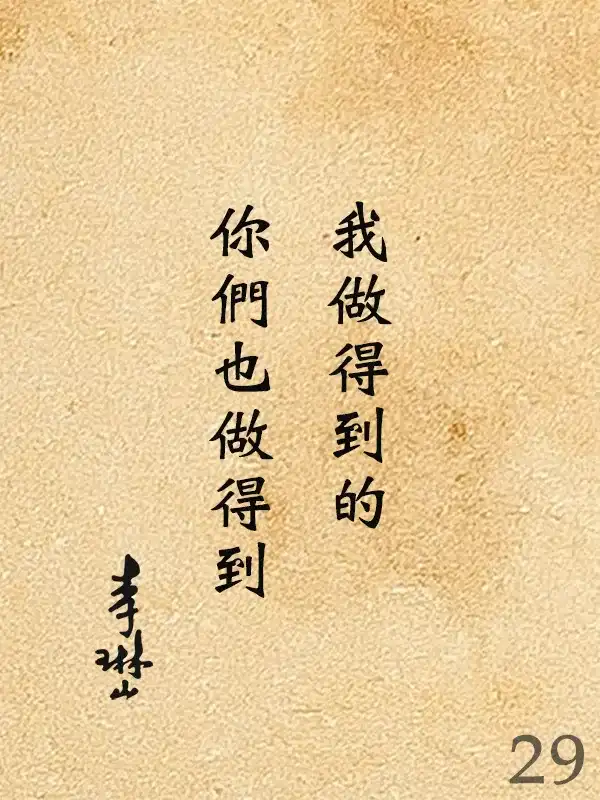 我做得到的
你們也做得到
李琳山
29